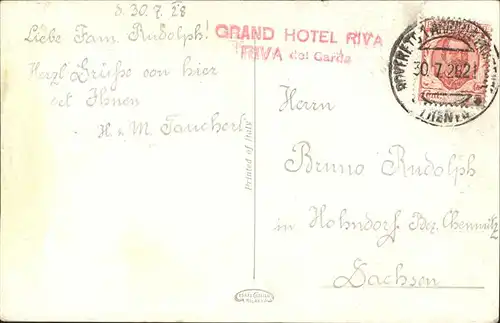 d. 30. 7. 28
Liebe Fam. Rudolph!
Herzl Grüße von hier
Ihnen
H. u M. Tauchert
GRAND HOTEL RIVA
RIVA del Garda
30 7
TRENTO
Printed in Italy
Herrn
Bruno Rudolph
in Hohndorf Bez. Chemnitz
Sachsen